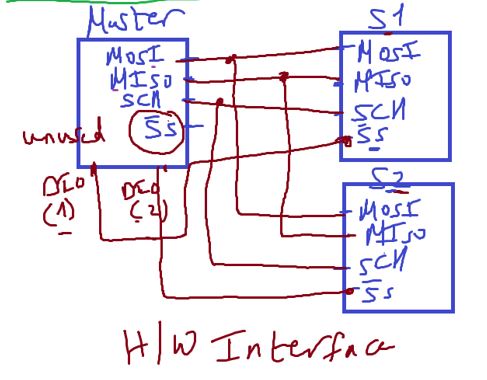 Master
MOSI
MISO
SCK
S̅S
unused
DIO
(1)
DIO
(2)
S1
MOSI
MISO
SCK
S̅S
S2
MOSI
MISO
SCK
S̅S
H/W Interface